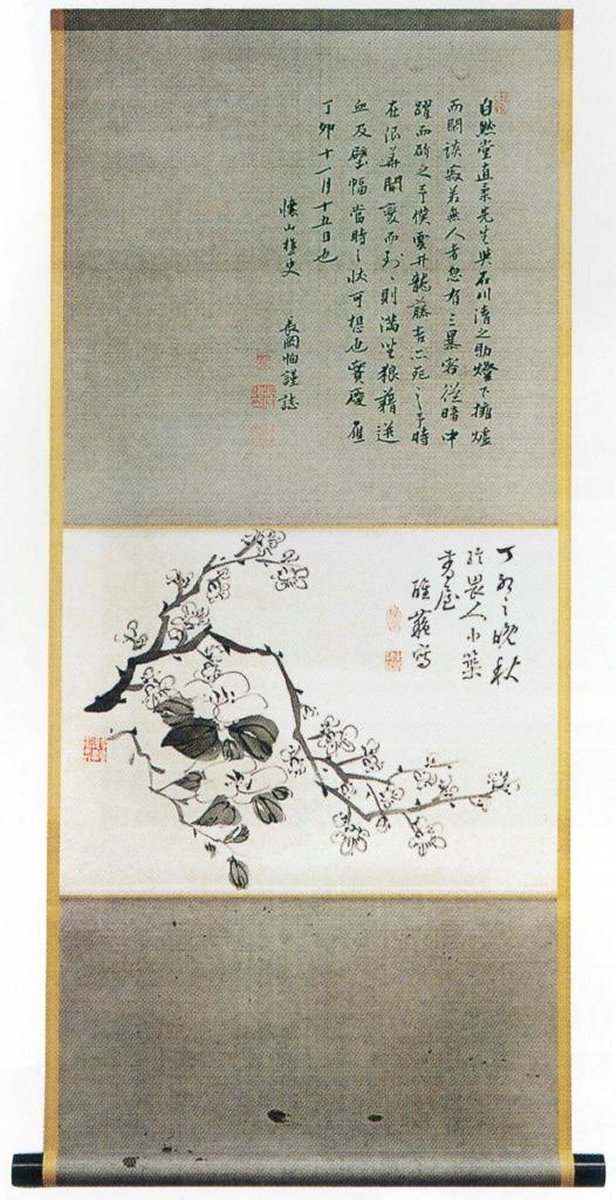 自然堂直柔先生與石川清之助燈下擁爐
而閑談寂若無人者忽有三暴客從暗中
躍而斫之予僕雲井龍藤吉亦死之予時
在浪華聞變而到々則滿坐狼藉迸
血及壁幅當時之狀可想也實慶應
丁卯十一月十五日也
懷山樵史 長岡恂謹誌
丁卯之晩秋
於畏人小築
書屋
寫